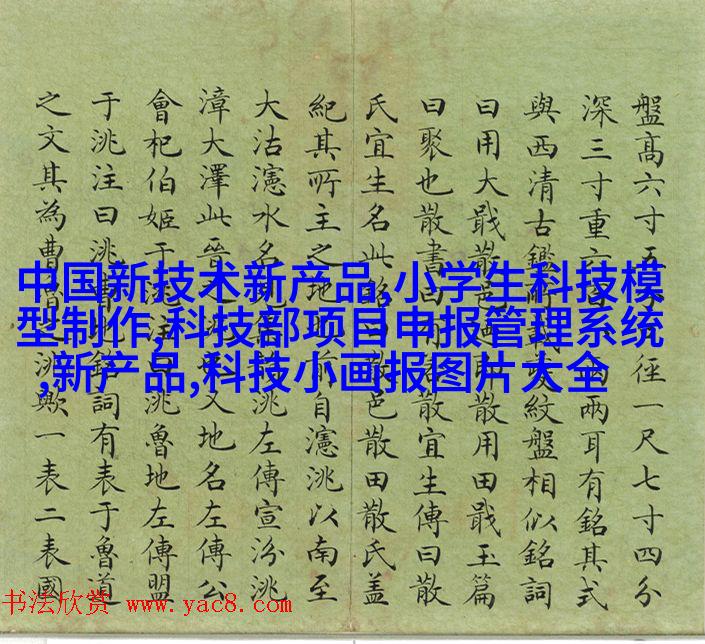 盤高六寸五徑一尺七寸四分
深三寸重六兩兩耳有銘其式
與西清古鑑所載紋盤相似銘詞
曰用大戥散邑散用田戥玉篇
曰聚也散書曰有散宜生傳曰散
氏宜生名此散邑散田散氏蓋
紀其所主之地前自瀗洮以南至
大沽瀗水名洮左傳宣汾洮
漳大澤此晉又地名左傳公
會杞伯姬于洮注曰洮魯地左傳盟
于洮注曰洮曹地銘詞有表于魯道
之文其為曹魯之洮歟一表二表國
中国新技术新产品,小学生科技模
型制作,科技部项目申报管理系统
,新产品,科技小画报图片大全
书法欣赏 www.yac8.com